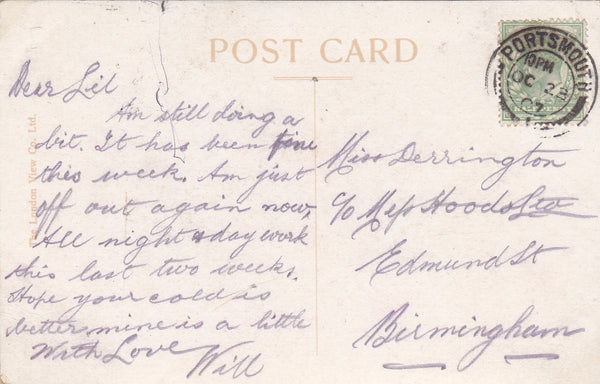 POST CARD
Dear Lil
Am still doing a
bit. It has been fine
this week. Am just
off out again now,
All night & day work
this last two weeks.
Hope your cold is
better mine is a little
With Love Will
Miss Derrington
c/o Hoods
Edmund St
Birmingham
PORTSMOUTH
10PM
OC
07
The London View Co. Ltd.